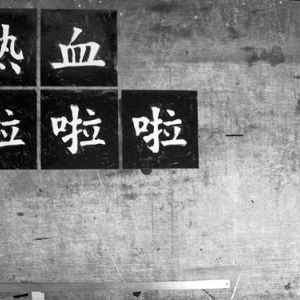 热血
啦啦啦